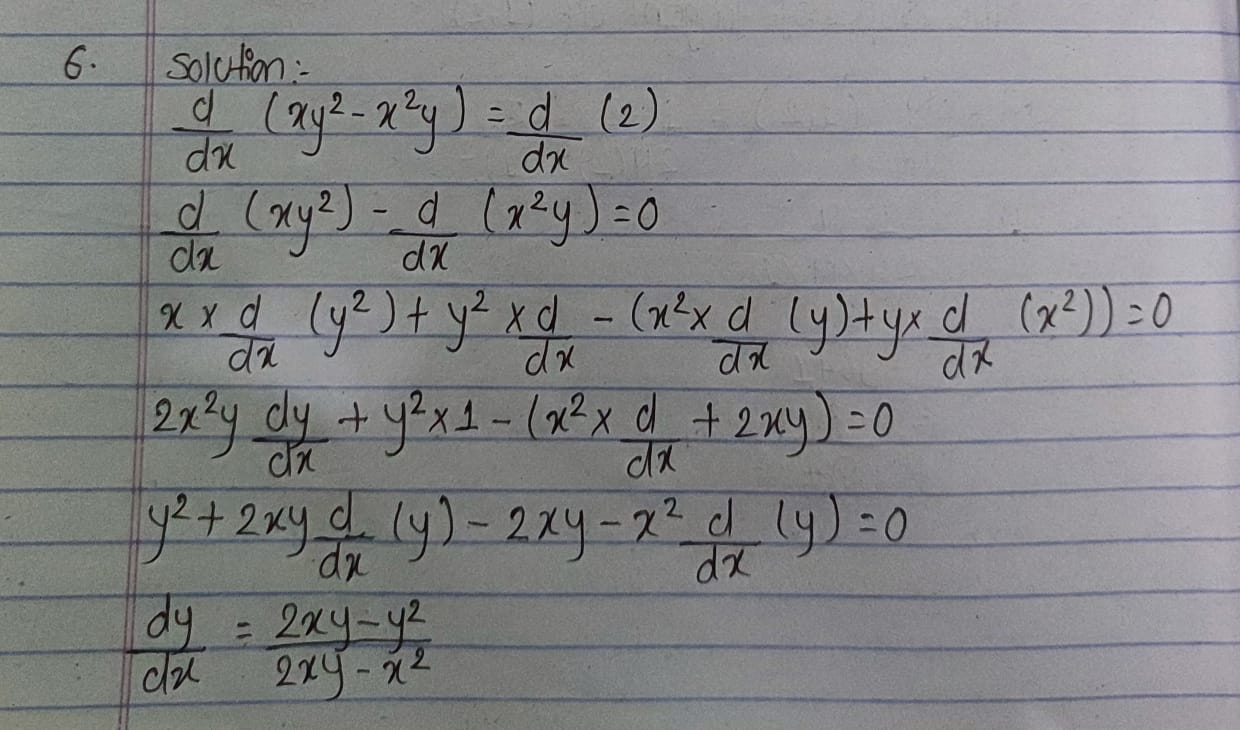 6. Solution:-
d/dx (xy² - x²y) = d/dx (2)
d/dx (xy²) - d/dx (x²y) = 0
x × d/dx (y²) + y² × d/dx - (x² × d/dx (y) + y × d/dx (x²)) = 0
2x²y dy/dx + y² × 1 - (x² × d/dx + 2xy) = 0
y² + 2xy d/dx (y) - 2xy - x² d/dx (y) = 0
dy/dx = 2xy - y² / 2xy - x²